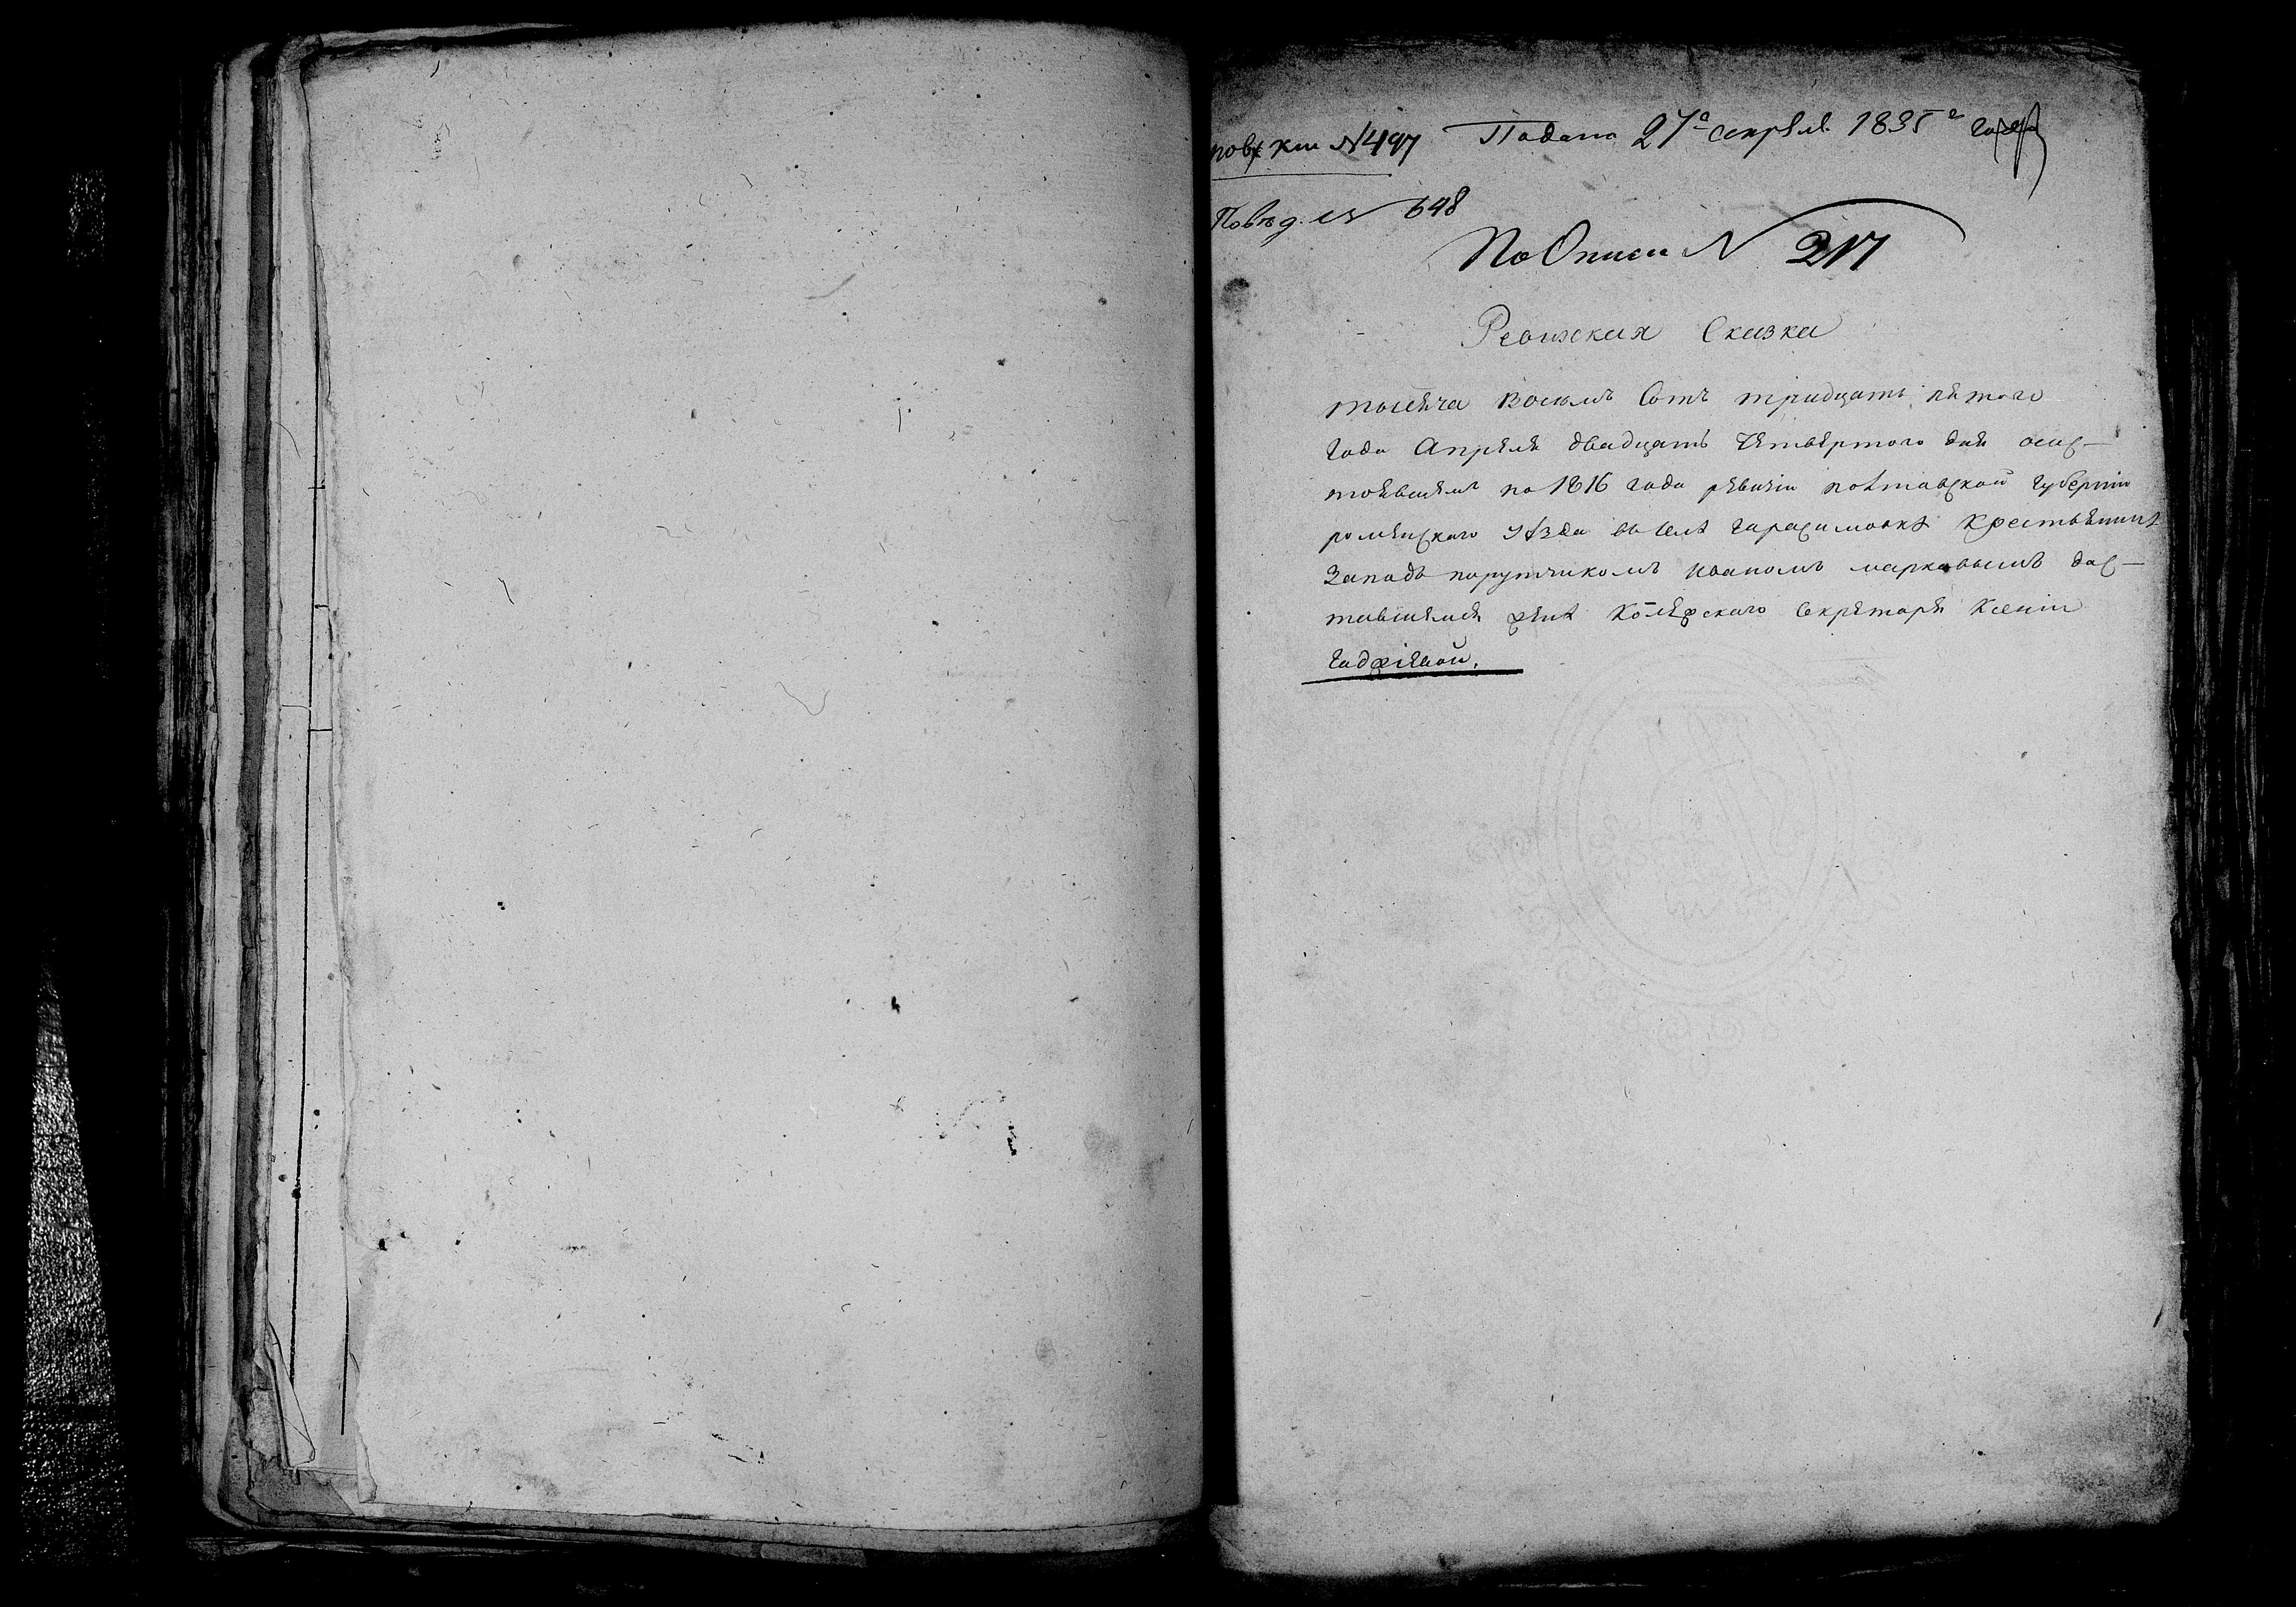 Подана 27го апреля 1835го года
пов кн №497
Повѣд. № 648
По Описи № 317
Ревижская Сказка
тысеча восемъ Сотъ тридцать пятого
года Апреля двадцать Четвертого дня о сос-
тоевшемъ по 1816 года ревизіи полтавской губерніи
роменского уѣзда въ селе Гарасимовкѣ крестьянинѣ
Запода порутчикомъ иваномъ маркавымъ дос-
тавшемся женѣ Колежского Секретаря Ксеніи